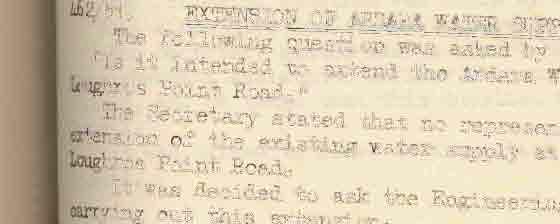 162/51. EXTENSION OF ARDARA WATER SUPP
The following question was asked by
"Is it intended to extend the Ardara W
Loughros Point Road."
The Secretary stated that no represen
extension of the existing water supply at
Loughros Point Road.
It was decided to ask the Engineering
carrying out this extension.